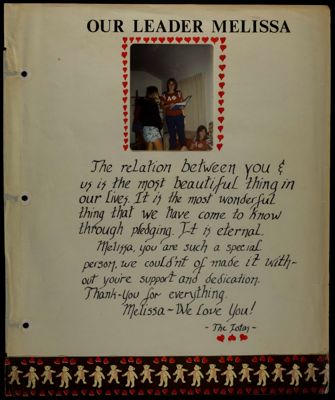 OUR LEADER MELISSA
The relation between you &
us is the most beautiful thing in
our lives. It is the most wonderful
thing that we have come to know
through pledging. I-t is eternal.
Melissa, you are such a special
person, we could'nt of made it with-
out you're support and dedication.
Thank-You for everything.
Melissa- We Love You!
- The Iotas -